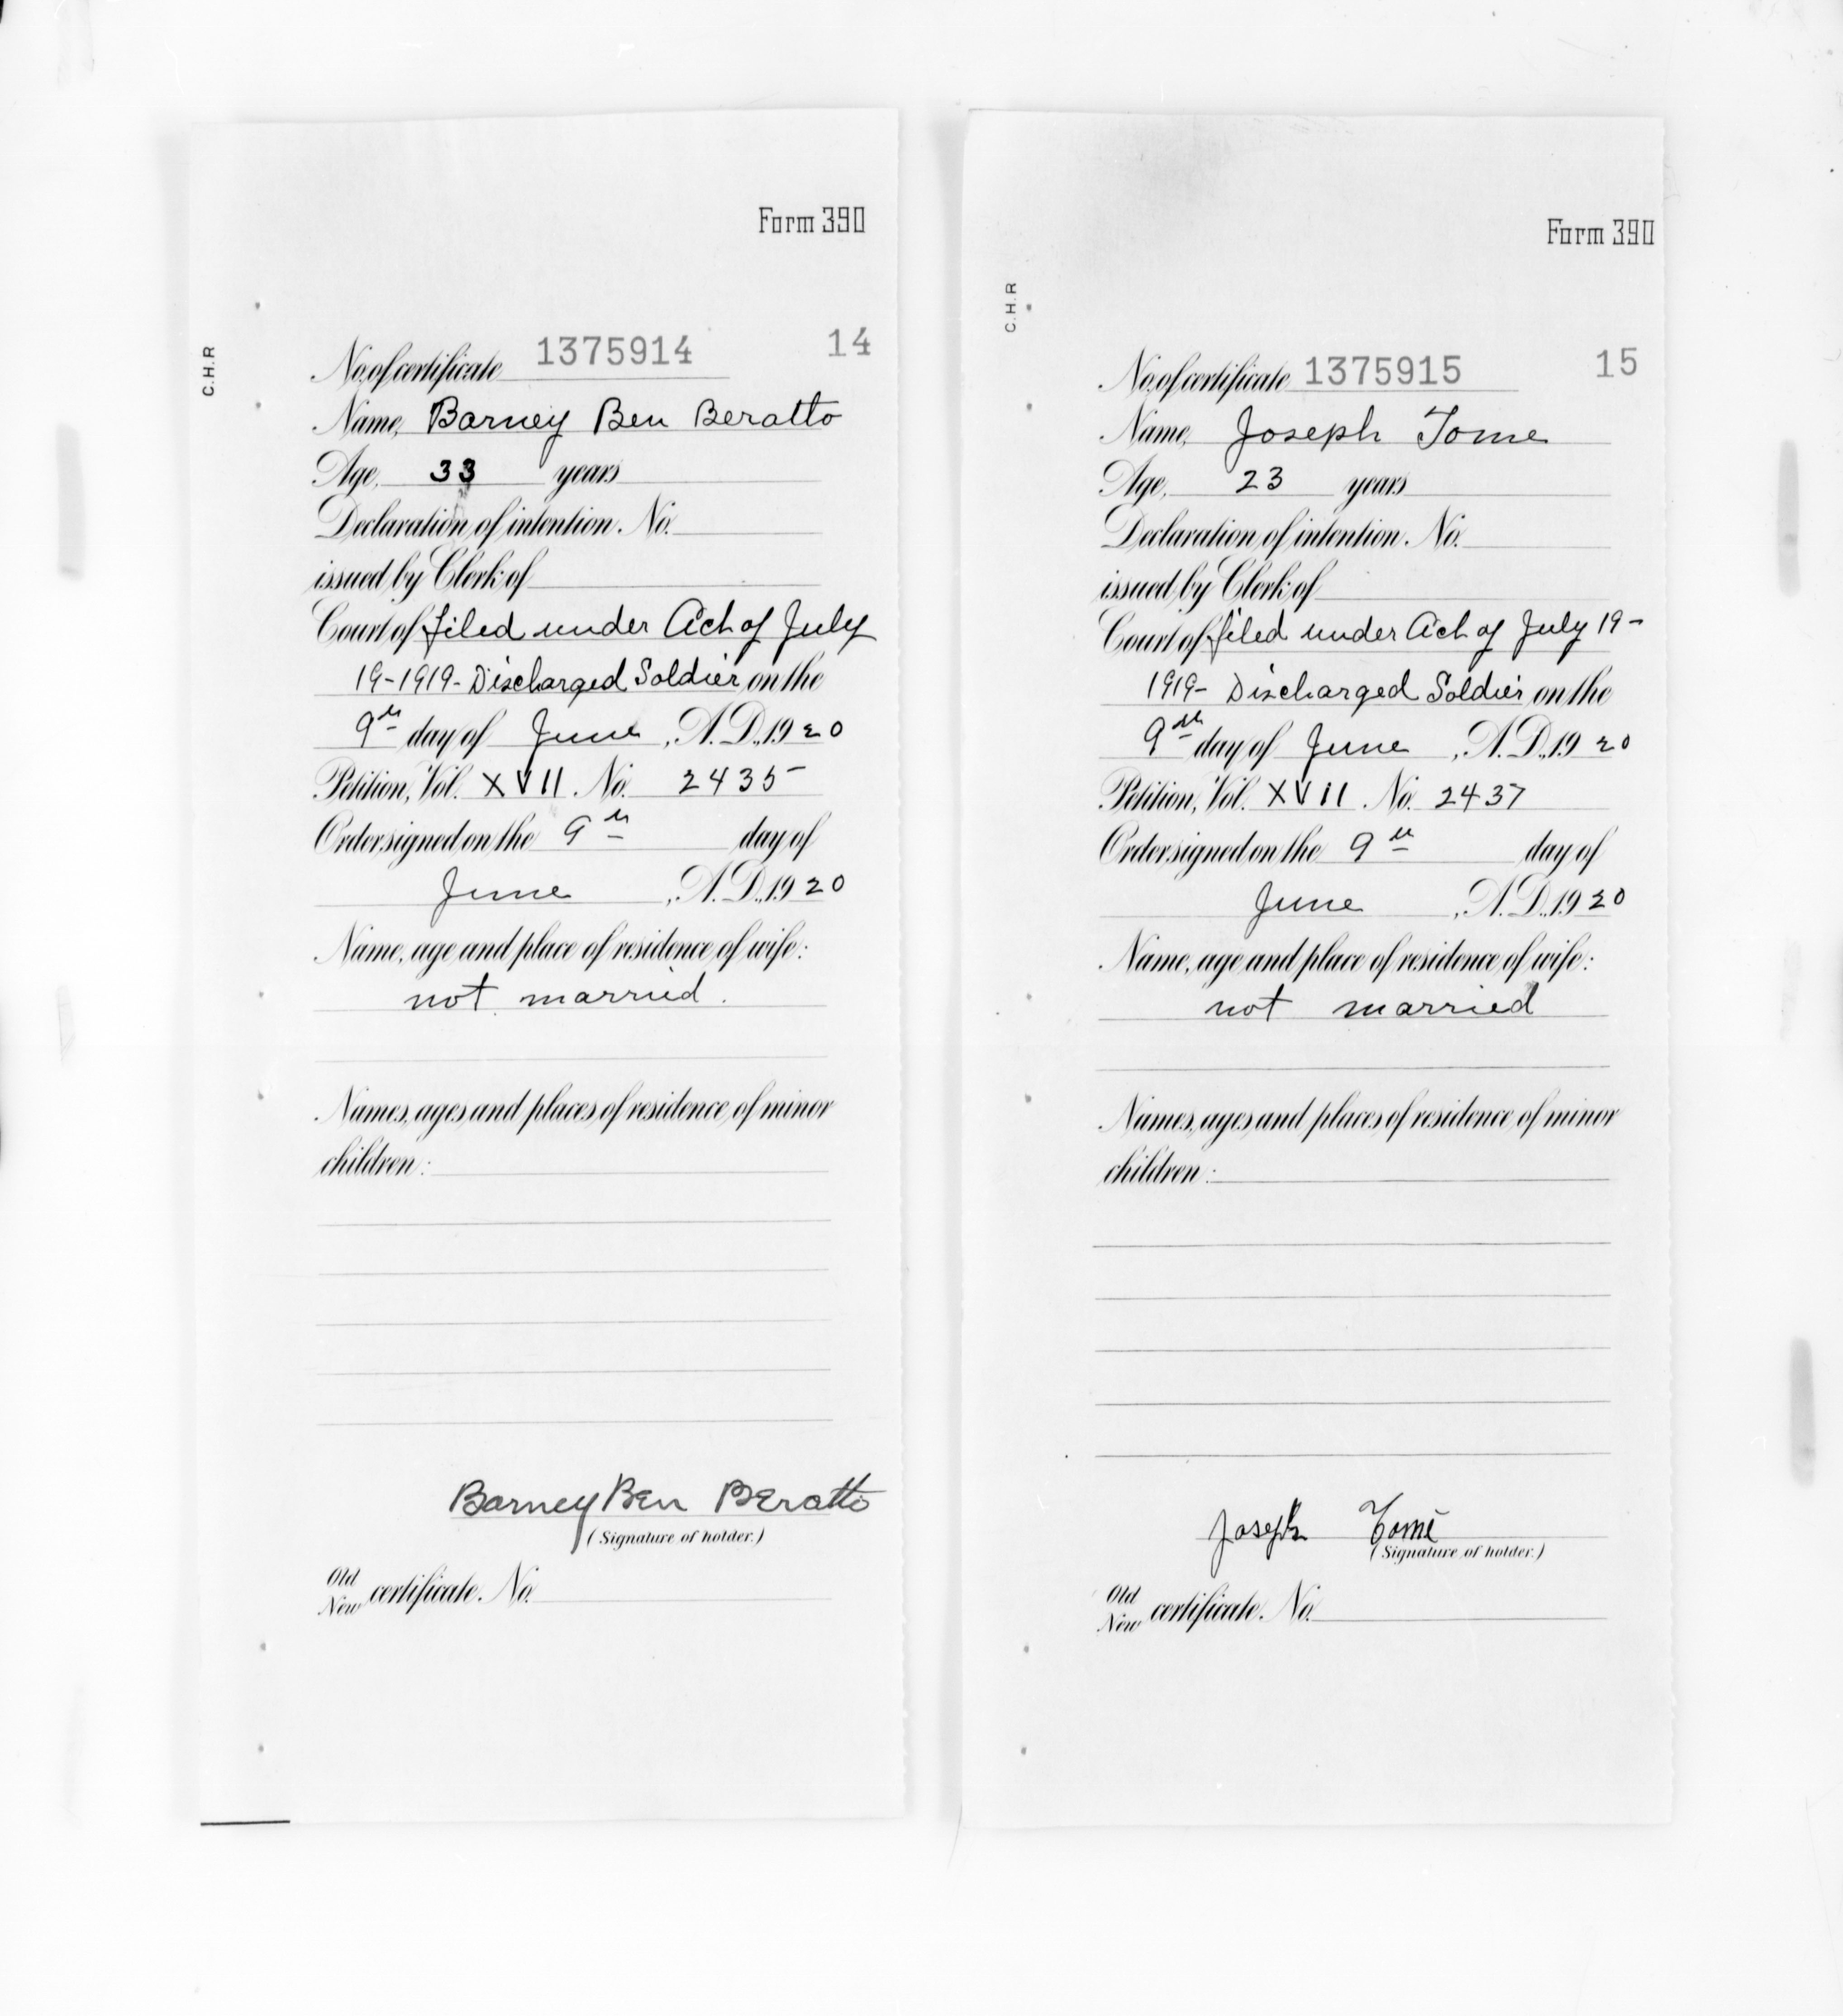 Form 390
C.H.R
No. of certificate 1375914 14
Name, Barney Ben Beratto
Age, 33 years
Declaration of intention. No.
issued by Clerk of
Court of filed under Act of July
19-1919- Discharged Soldier on the
9th day of June, A.D., 1920
Petition, Vol. XVII. No. 2435
Order signed on the 9th day of
June, A.D., 1920
Name, age and place of residence of wife:
not married.
Names, ages and places of residence of minor
children:
Barney Ben Beratto
(Signature of holder.)
Old
New certificate. No.
Form 390
C.H.R
No. of certificate 1375915 15
Name, Joseph Tome
Age, 23 years
Declaration of intention. No.
issued by Clerk of
Court of filed under Act of July 19-
1919- Discharged Soldier on the
9th day of June, A.D., 1920
Petition, Vol. XVII. No. 2437
Order signed on the 9th day of
June, A.D., 1920
Name, age and place of residence of wife:
not married
Names, ages and places of residence of minor
children:
Joseph Tome
(Signature of holder.)
Old
New certificate. No.